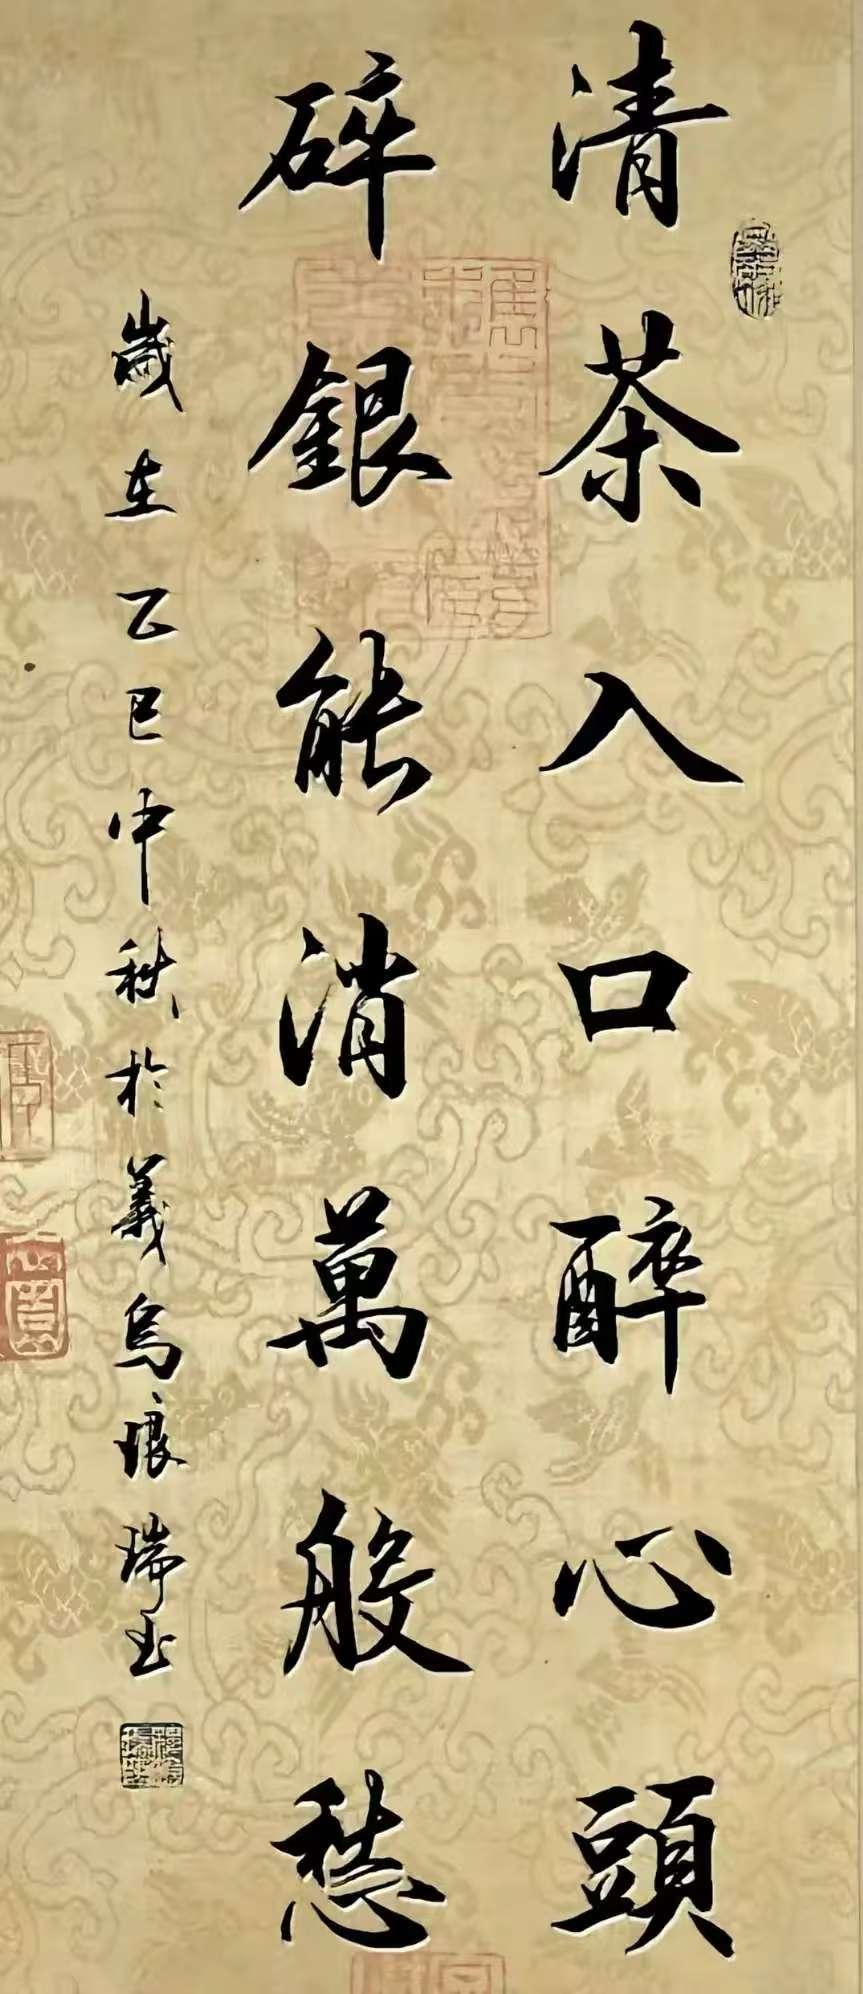 清茶入口醉心頭
碎銀能消萬般愁
歲在乙巳中秋於義烏琅瑞玉